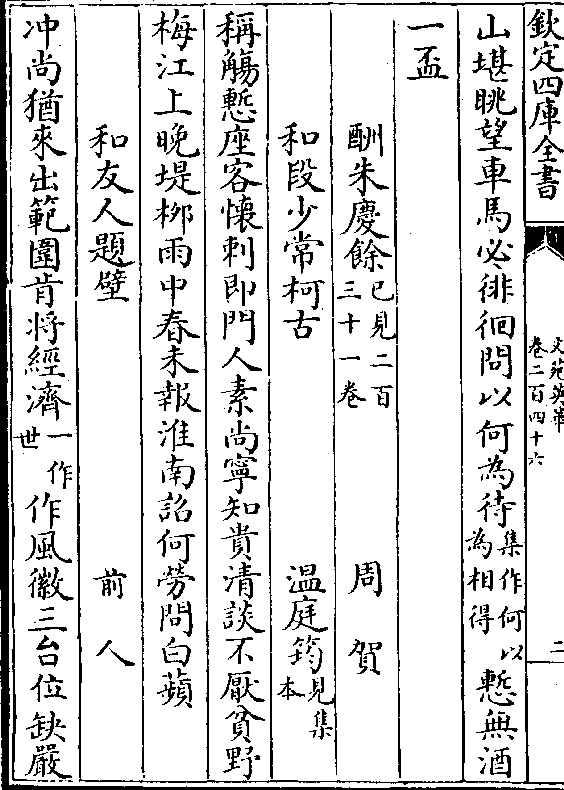 欽定四庫全書
文苑英華
卷二百四十六
二
山堪眺望車馬必徘徊問以何為待集作何以為相得慙無酒
一盃
酬朱慶餘已見二百三十一卷 周賀
和段少常柯古 温庭筠見集本
稱觴慙座客懷刺即門人素尚寧知貴清談不厭貧野
梅江上晚堤栁雨中春未報淮南詔何勞問白蘋
和友人題壁 前人
冲尚猶來出範圍肯將經濟一作世作風徽三台位缺嚴